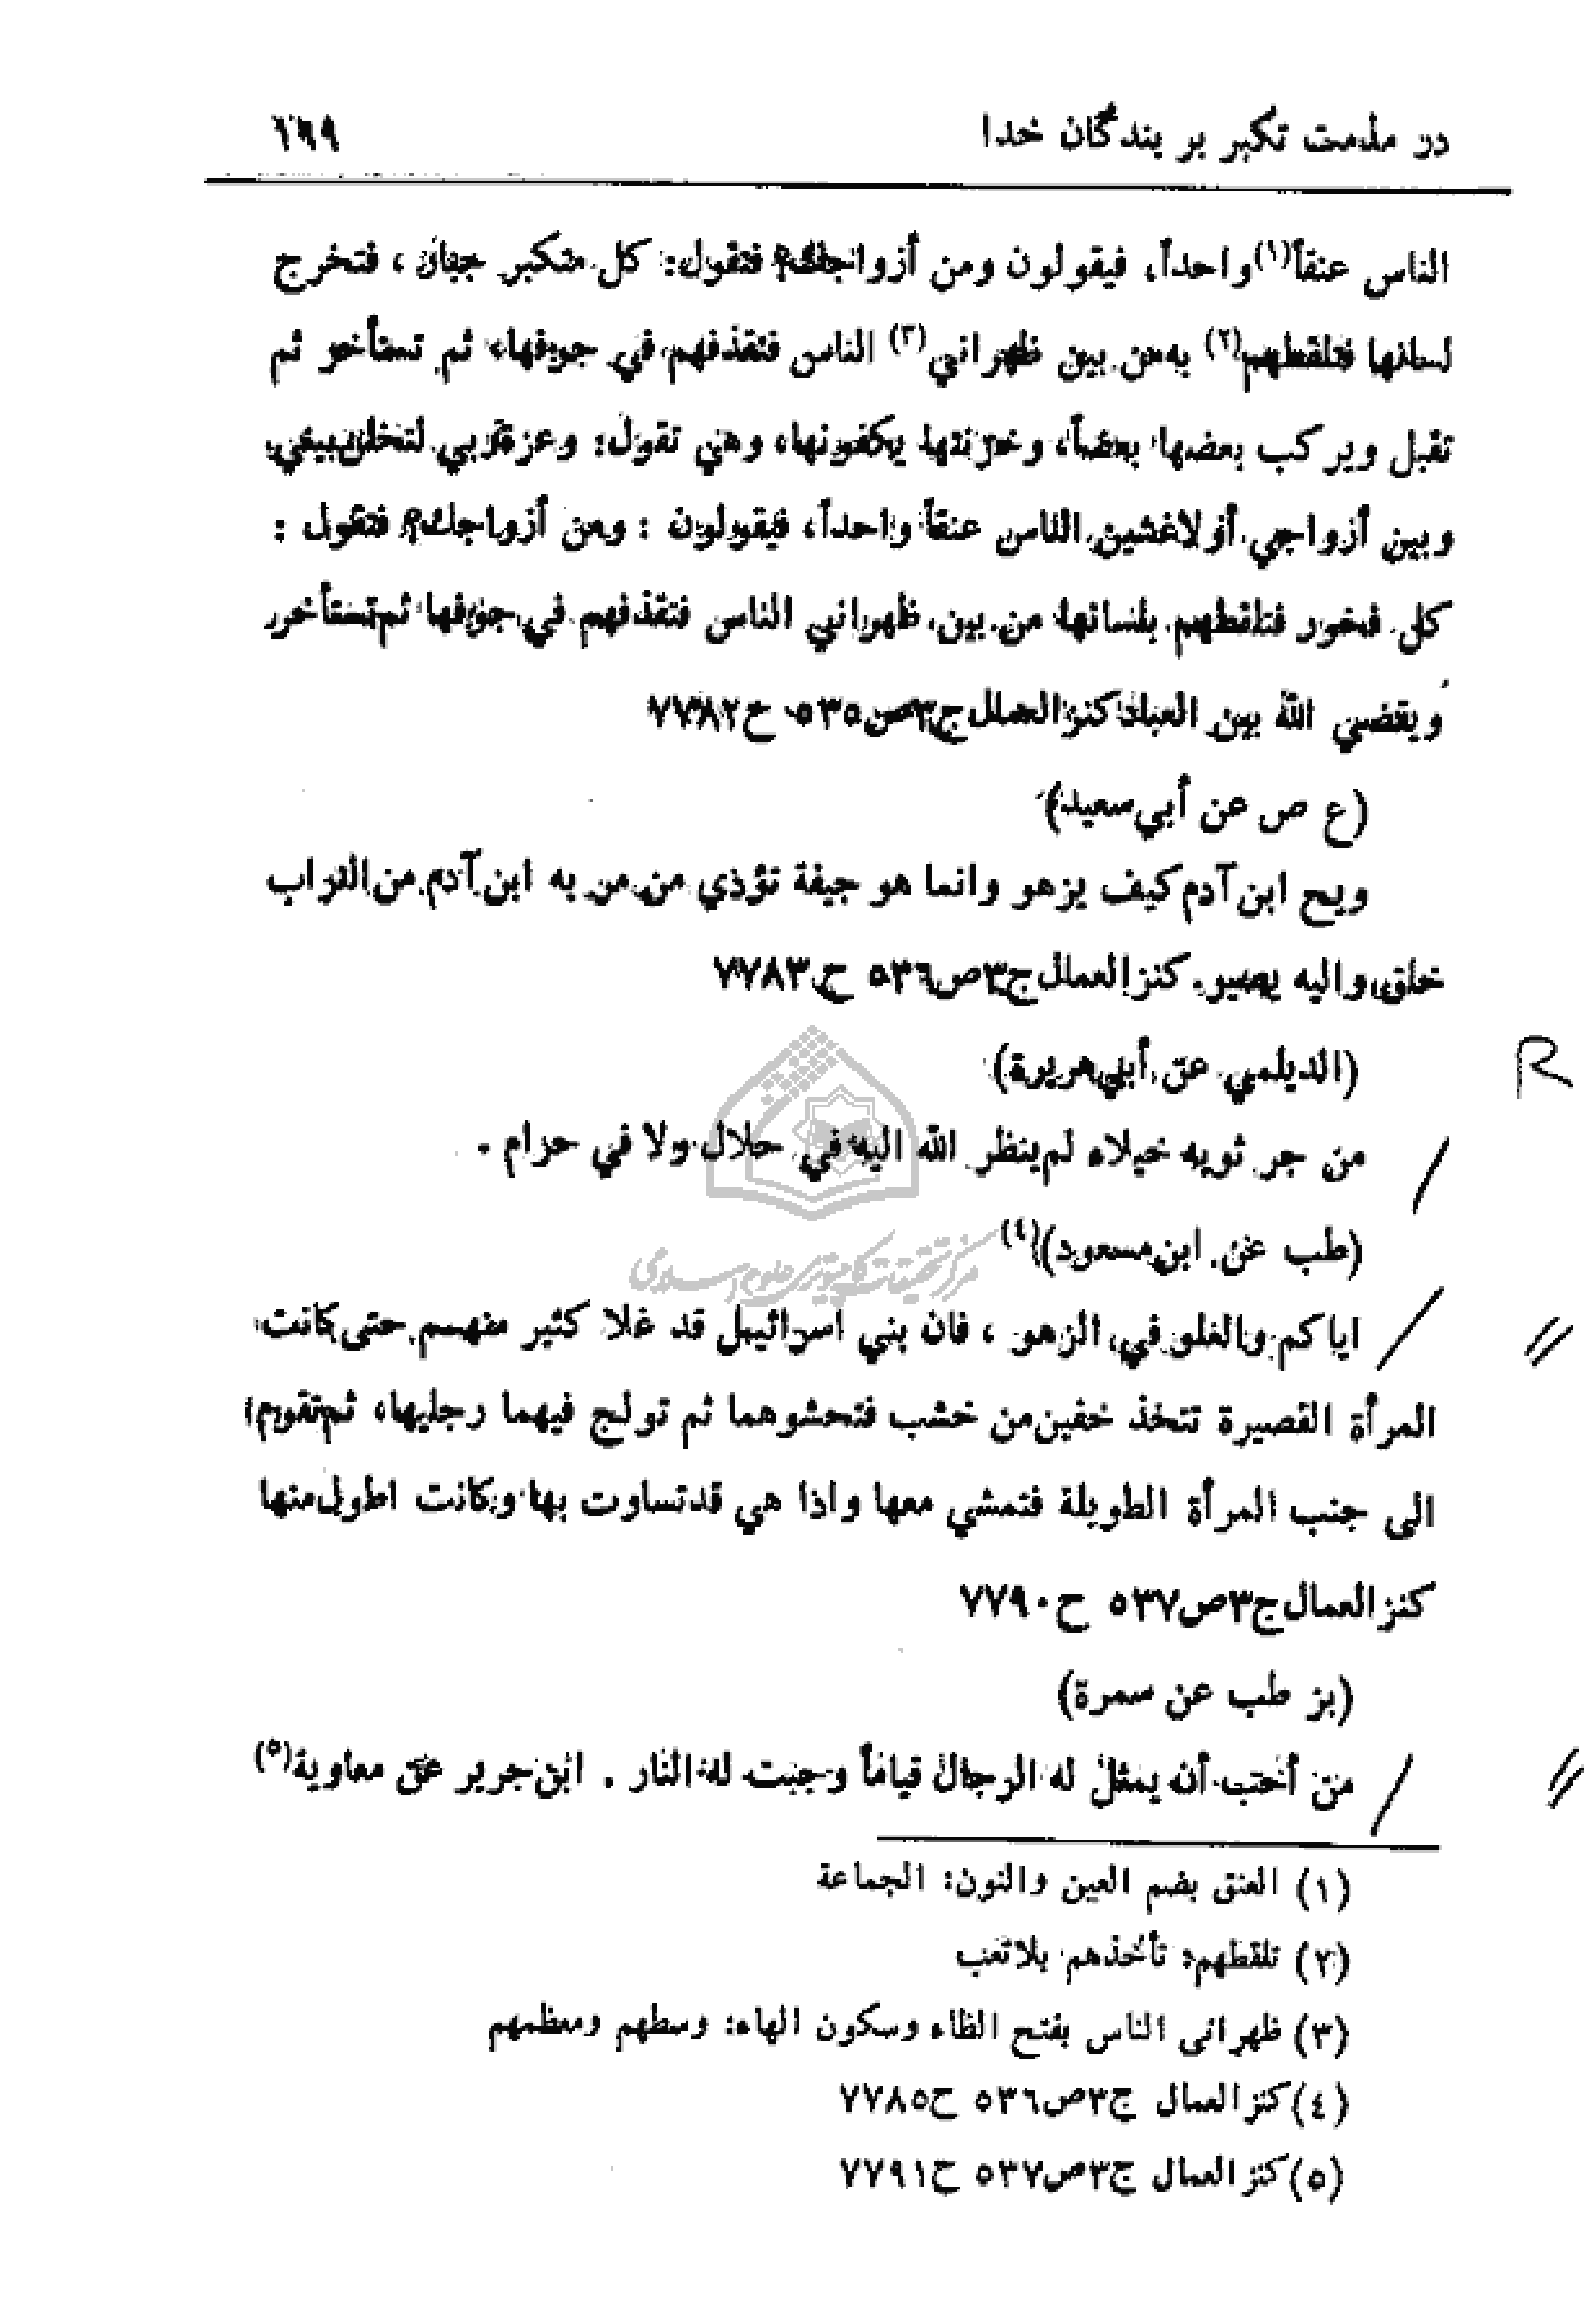 در مذمت تکبر بر بندگان خدا ١٦٩
الناس عنقاً(١) واحداً، فيقولون ومن أزواجك؟ فتقول: كل متكبر جبار، فتخرج
لسانها فتلقطهم(٢) به من بين ظهراني(٣) الناس فتقذفهم في جوفها، ثم تستأخر ثم
تقبل ويركب بعضها بعضاً، وخزنتها يكفونها، وهي تقول: وعزة ربي لتخلن بيني
وبين أزواجي أو لاغشين الناس عنقاً واحداً، فيقولون : ومن أزواجك؟ فتقول :
كل فخور فتلقطهم بلسانها من بين ظهراني الناس فتقذفهم في جوفها ثم تستأخر
ويقضي الله بين العباد كنز العمال ج٣ص٥٣٥ ح٧٧٨٢
(ع ص عن أبي سعيد)
ويح ابن آدم كيف يزهو وانما هو جيفة تؤذي من مر به ابن آدم من التراب
خلق واليه يصير. كنز العمال ج٣ص٥٣٦ ح٧٧٨٣
(الديلمي عن أبي هريرة) R
من جر ثوبه خيلاء لم ينظر الله اليه في حلال ولا في حرام .
(طب عن ابن مسعود)(٤)
مركز تحقيقات كامپيوترى علوم اسلامى
اياكم والغلو في الزهو ، فان بني اسرائيل قد غلا كثير منهم حتى كانت
المرأة القصيرة تتخذ خفين من خشب فتحشوهما ثم تولج فيهما رجليها، ثم تقوم
الى جنب المرأة الطويلة فتمشي معها واذا هي قد تساوت بها وكانت اطول منها
كنز العمال ج٣ص٥٣٧ ح٧٧٩٠
(بز طب عن سمرة)
من أحب أن يمثل له الرجال قياماً وجبت له النار . ابن جرير عن معاوية(٥)
(١) العنق بضم العين والنون: الجماعة
(٢) تلقطهم: تأخذهم بلاتعب
(٣) ظهرانى الناس بفتح الظاء وسكون الهاء: وسطهم ومعظمهم
(٤) كنز العمال ج٣ص٥٣٦ ح٧٧٨٥
(٥) كنز العمال ج٣ص٥٣٧ ح٧٧٩١